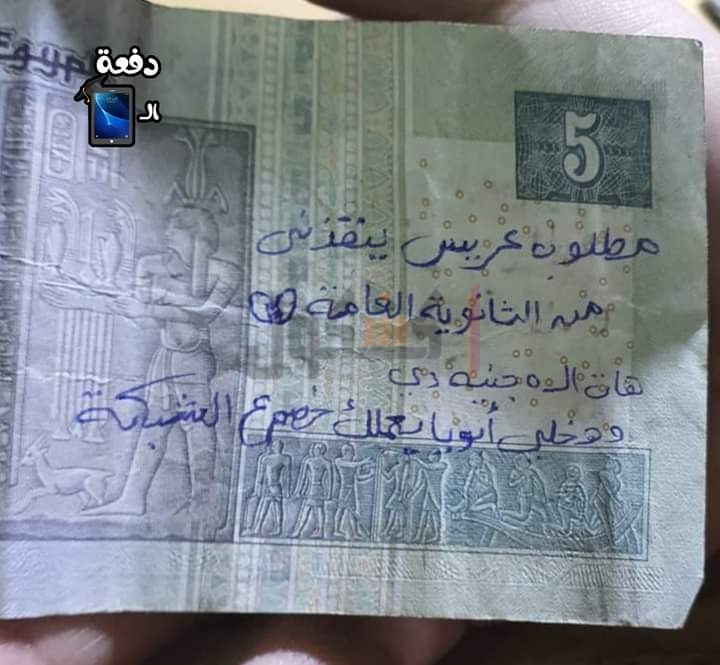 Egyp
دفعة
الـ
5
مطلوب عريس ينقذني
من الثانوية العامة
هات الـ ٥ جنيه دي
وهخلي أبويا يعملك خصم ع الشبكة